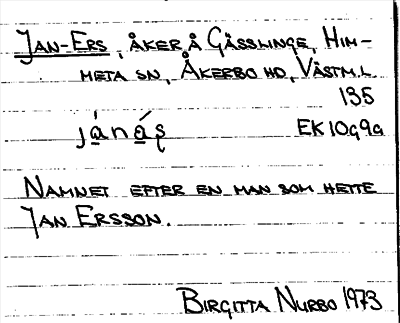 JAN-ERS, ÅKER Å GÄSSLINGE, HIM-
META SN, ÅKERBO HD, VÄSTM.L.
135
jánás̨ EK 10g9a
NAMNET EFTER EN MAN SOM HETTE
JAN ERSSON.
BIRGITTA NURBO 1973